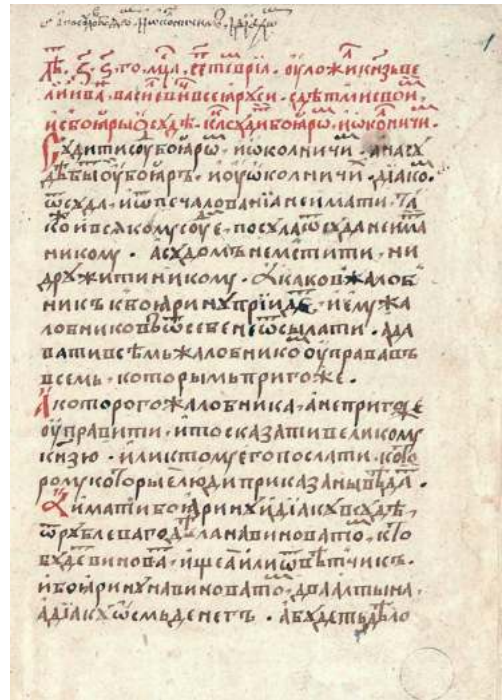 оуложи кнзь ве
всеѧ рꙋси . с дѣтми свои
и с боѧры ѡ сꙋдѣ . ка сꙋди боѧрѡ , и ѡколничи .
Сꙋдити сꙋ боѧрѡ . и ѡколничи . а на сꙋ
дѣ быти оу боѧръ . и оу ѡколничи дїако .
ѿ сꙋда , и ѿ печалованїа не имати . та
ко и всѧкомꙋ сꙋе , посꙋла ѿ сꙋда не има
никомꙋ . а сꙋдомъ не мстити , ни
дрꙋжити никомꙋ . а каков жалоб
никъ к боѧринꙋ прїиде , и емꙋ жа
лобниковъ ѿ себе не ѿсылати . а да
вати всѣмъ жалобнико оуправа въ
всемь . которымъ пригоже .
А которого жалобника , а не пригоже
оуправити , и то сказати великомꙋ
кнзю . или к томꙋ его послати . кото
ромꙋ которые люди приказаны вѣда .
А имати боѧринꙋ и дїакꙋ в сꙋдѣ
ѿ рꙋблеваго дѣла на виновато , кто
бꙋде винова , ищеа или ѿвѣтчикъ .
и боѧринꙋ на виновато , два алтына ,
а дїакꙋ ѡсмь денегъ . а бꙋдеть дѣло